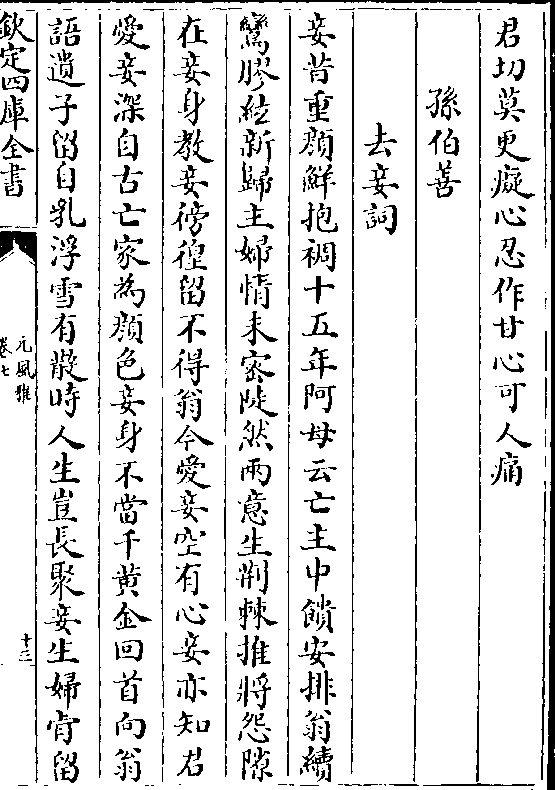 君切莫更癡心忍作甘心可人痛
孫伯善
去妾詞
妾昔重顔鮮抱裯十五年阿母云亡主中饋安排翁續
鸞膠絃新歸主婦情未密陡然兩意生荆棘推將怨隙
在妾身教妾徬徨留不得翁今愛妾空有心妾亦知君
愛妾深自古亡家為顔色妾身不當千黄金回首向翁
語遺子留自乳浮雪有散時人生豈長聚妾生婦肯留
欽定四庫全書
元風雅
卷七
十三